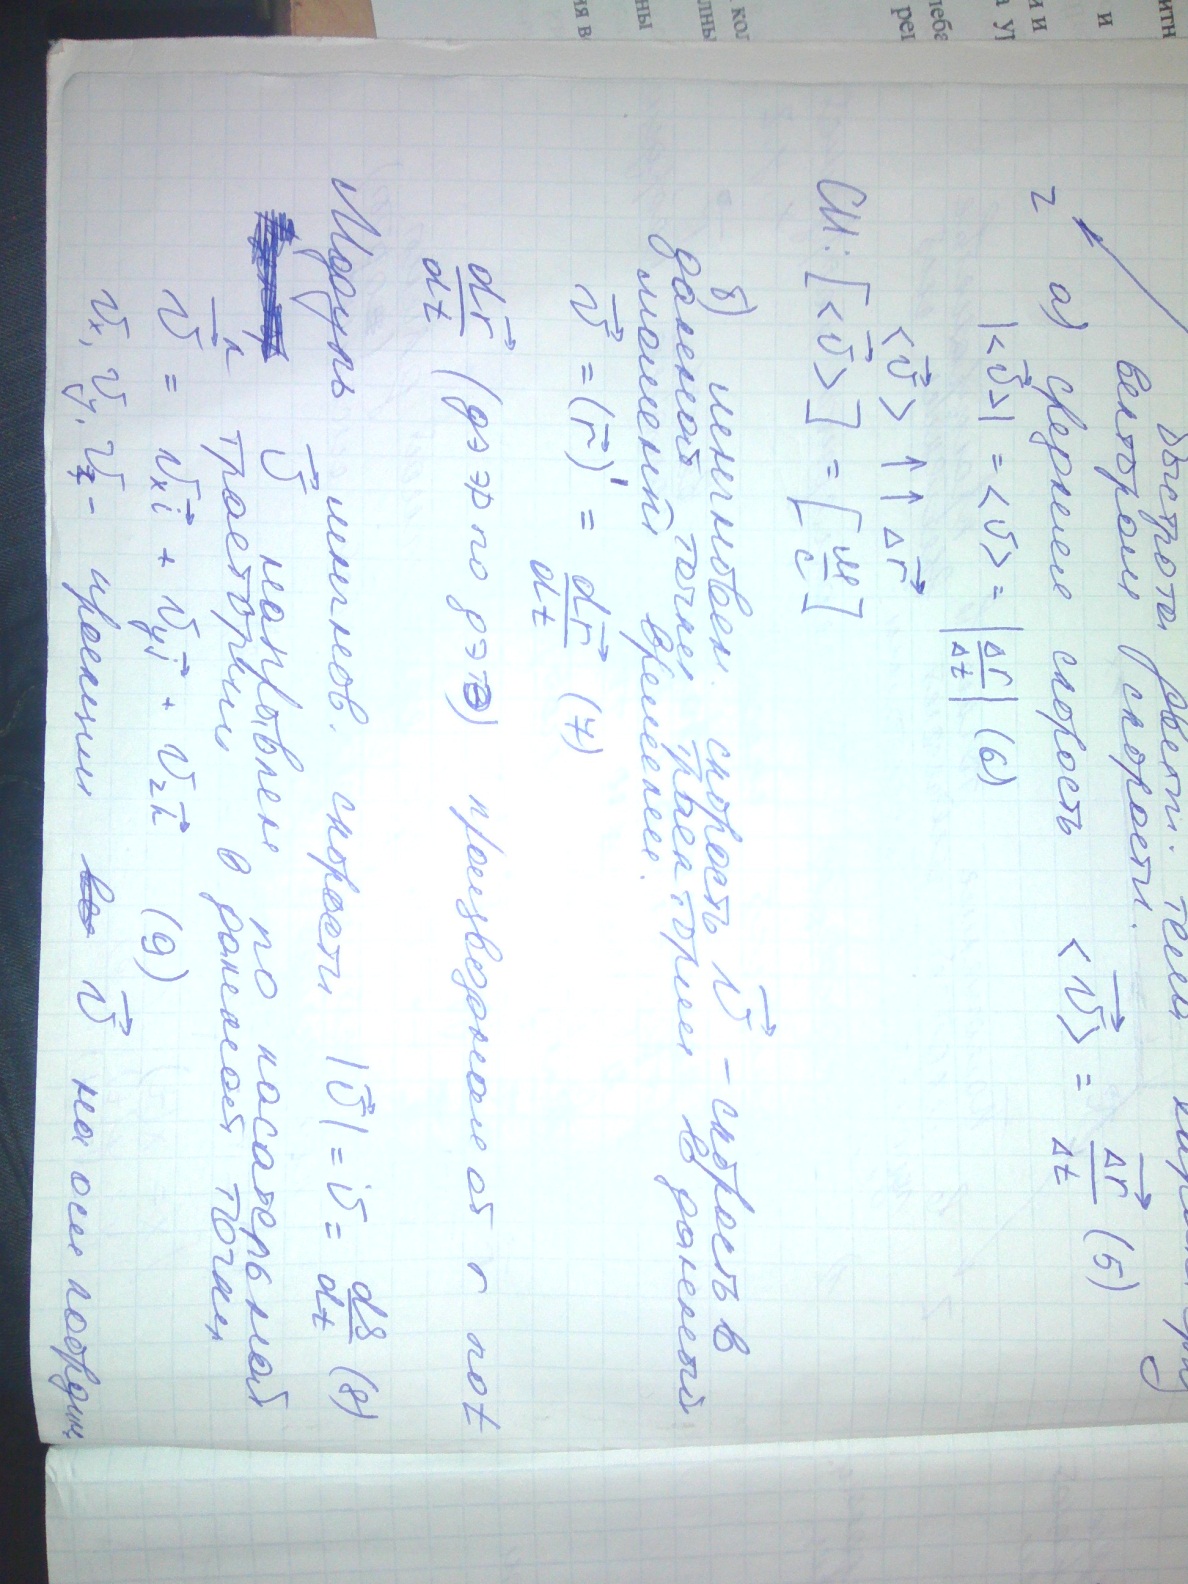 Быстрота движ. тела
вектором скорости.
2 а) средняя скорость <v⃗> = Δr⃗/Δt (5)
|<v⃗>| = <v> = |Δr⃗/Δt| (6)
<v⃗> ↑↑ Δr⃗
СИ: [<v⃗>] = [м/с]
б) мгновен. скорость v⃗ – скорость в
данной точке траектории в данный
момент времени.
v⃗ = (r⃗)' = dr⃗/dt (7)
dr⃗/dt (дэ эр по дэ тэ) производная от r по t
Модуль мгнов. скорости |v⃗| = v = dS/dt (8)
v⃗ направлен по касательной
к траектории в данной точке
v⃗ = vₓi⃗ + v_yj⃗ + v_zk⃗ (9)
vₓ, v_y, v_z – проекции v⃗ на оси координ.
итн
и
и и
а ур
лебе
рег
кол
лны
ны
ия в